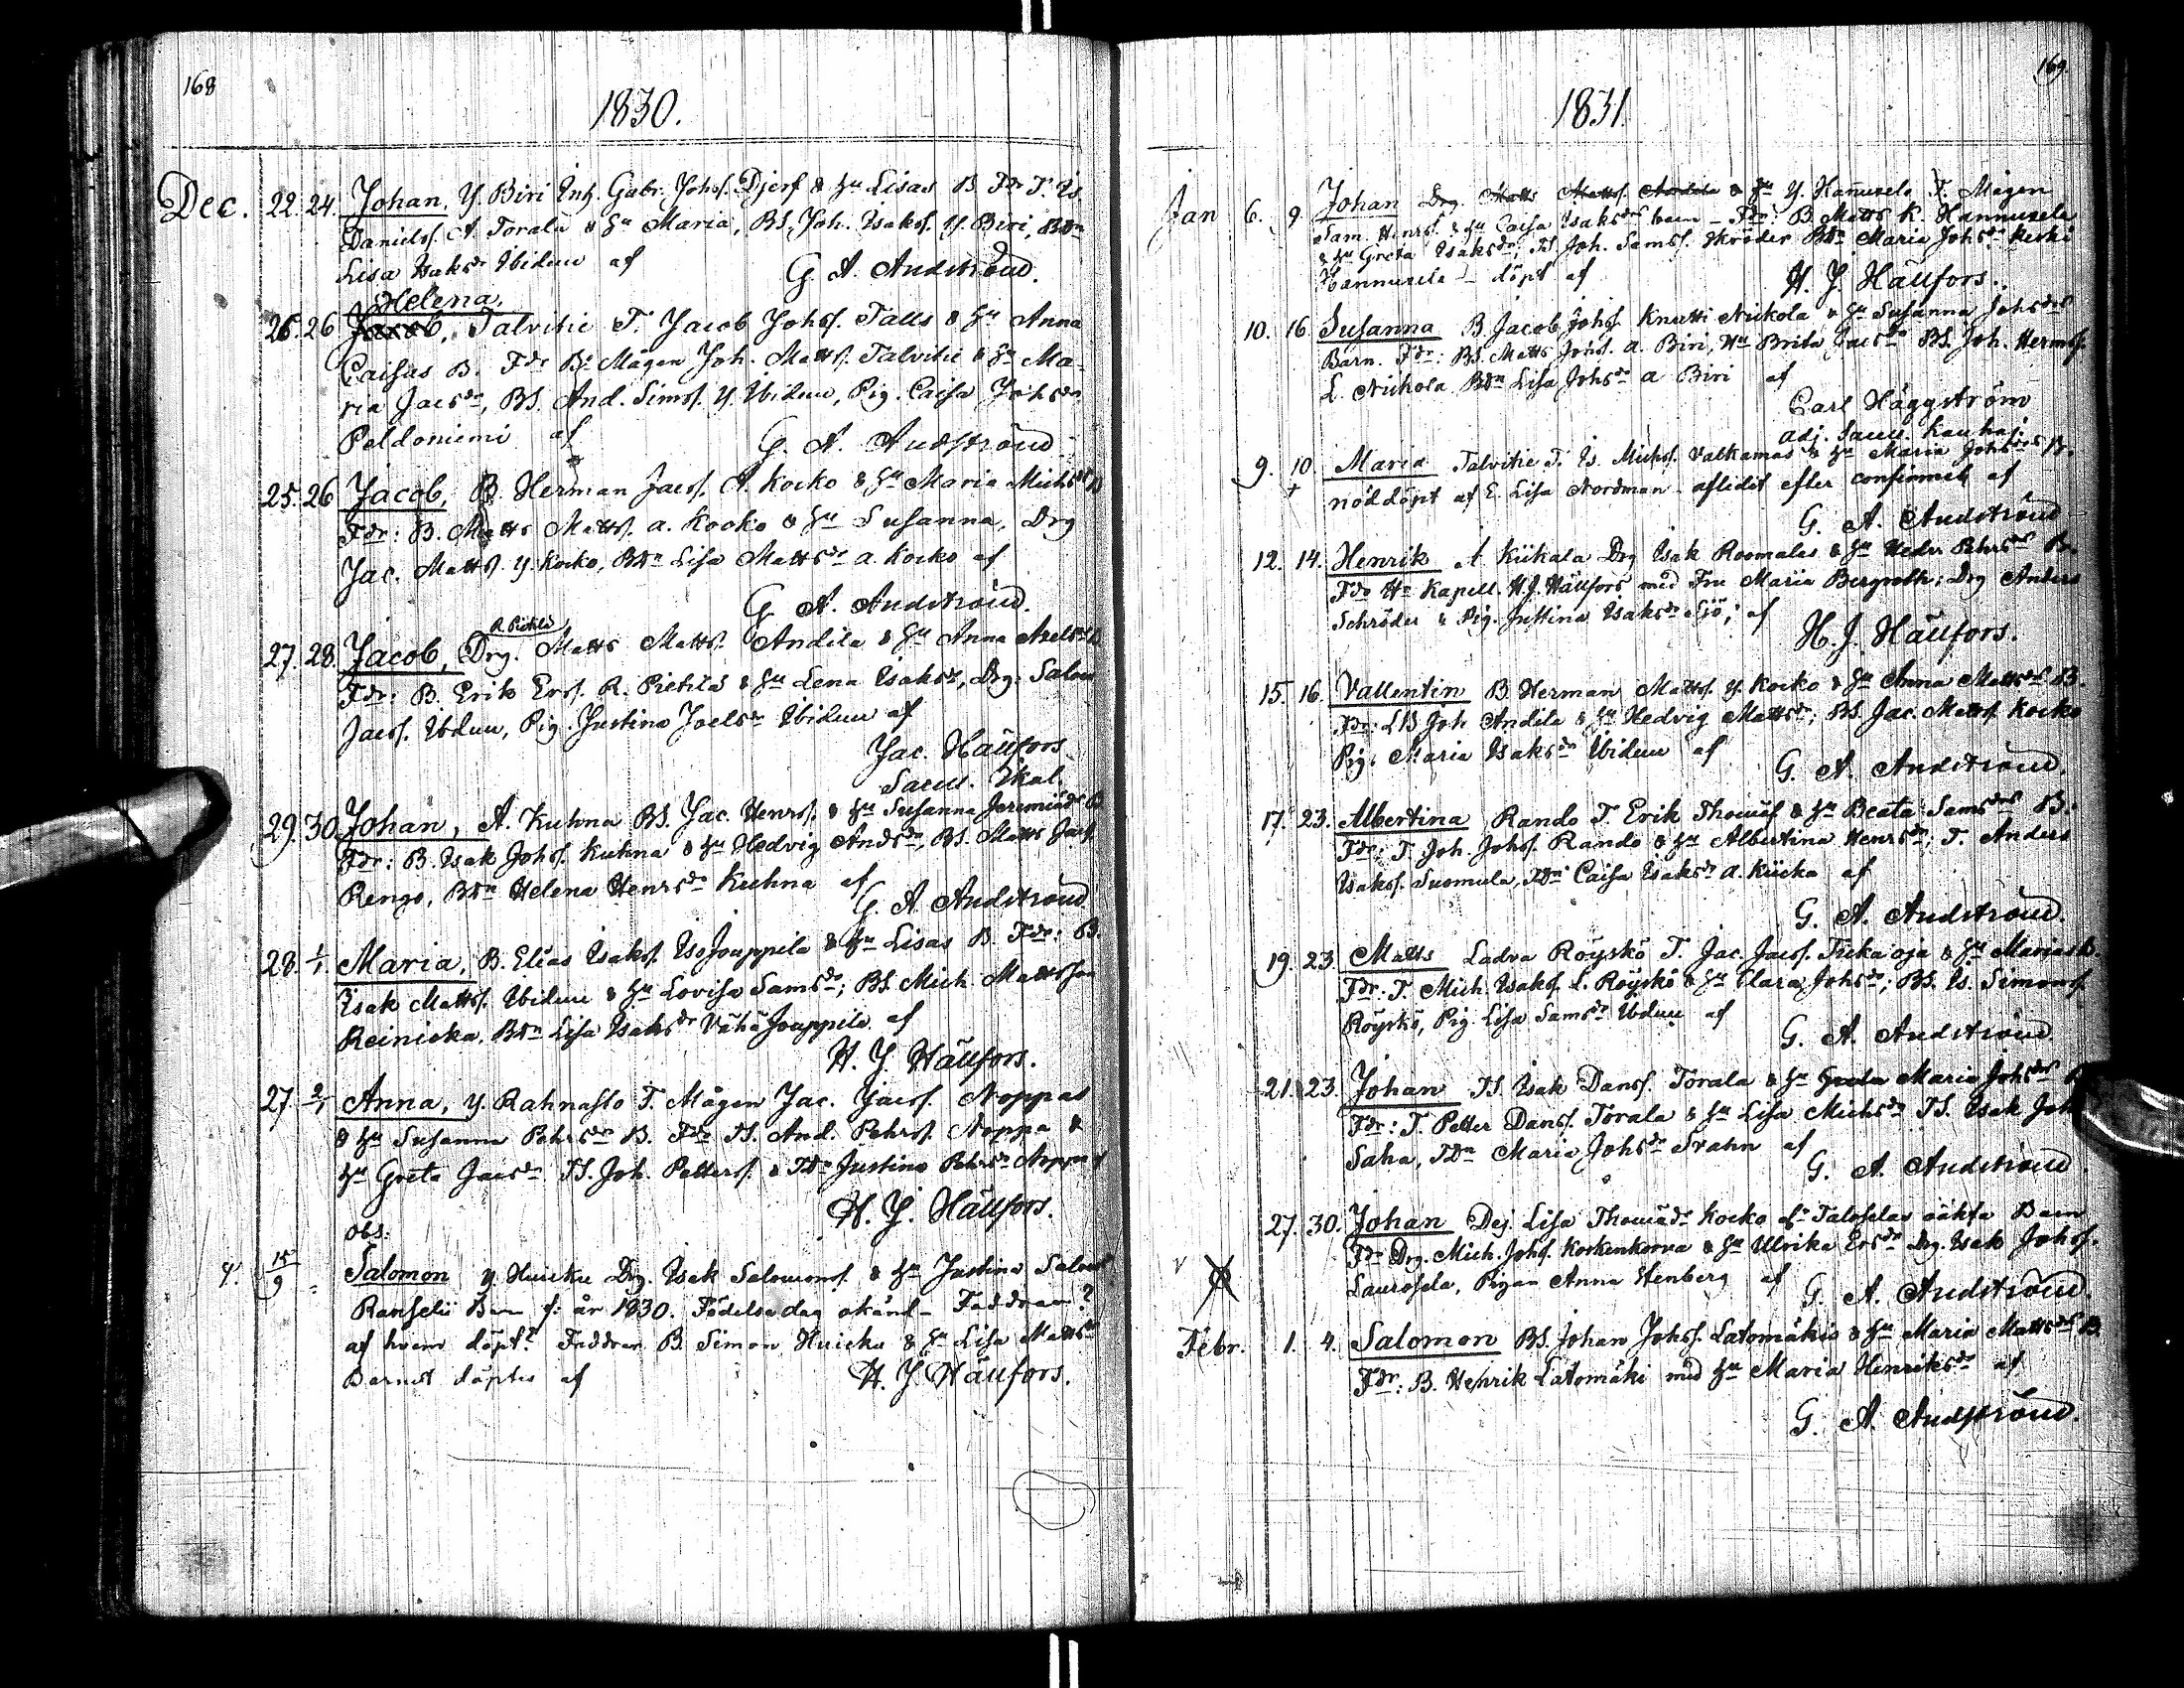 168
1830.
Dec. 22. 24. Johan, Y. Biri Inh. Gabr. Johs. Djerf & hu Lisas B. Fdr T. Is.
Daniels. A. Torala & hu Maria, BS. Joh. Isaks. Y. Biri, Bdn
Lisa Isaksdr Ibidem af G. A. Andström.
Helena,
26. 26 Jacob, Talvitie T. Jacob Johs. Talls & hu Anna
Caisas B. Fdr B. Mågen Joh. Matts. Talvitie & hu Ma-
ria Jacsdr, BS. And. Sims. Y. Ibidem, Pig. Caisa Johsdr
Peldoniemi af G. A. Andström
25. 26 Jacob, B. Herman Jacs. A. Kocko & hu Maria Michsdr B
Fdr: B. Matts Matts. a. Kocko & hu Susanna, Drg
Jac. Matts. Y. Kocko, Bdn Lisa Mattsdr a. Kocko af
G. A. Andström.
R. Pietilä
27. 28. Jacob, Drg. Matts Matts. Andila & hu Anna Axelsdr B
Fdr: B. Erik Ers. R. Pietilä & hu Lena Isaksdr, Drg. Salom
Jacs. Ibdem, Pig. Justina Joelsdr Ibidem af
Jac. Hällfors
Sacell. Ikal.
29. 30. Johan, A. Kuhna BS. Jac. Henrs. & hu Susanna Jeremiädr B
Fdr: B. Isak Johs. Kuhna & hu Hedvig Andsdr, BS. Matts Jacs.
Rengo, Bdn Helena Henrsdr Kuhna af
G. A. Andström
28. 1/1. Maria, B. Elias Isaks. IsoJouppila & hu Lisas B. Fdr: B.
Isak Matts. Ibidem & hu Lovisa Samsdr; BS. Mich. Mattsson
Reinicka, Bdn Lisa Isaksdr Vähä Jouppila af
H. J. Hällfors.
27. 2/1 Anna, Y. Rahnasto T. Mågen Jac. Jacs. Noppas
& hu Susanna Pehrsdr B. Fdr TS. And. Pehrs. Noppa &
hu Greta Jacsdr. TS. Joh. Petters. & Tdn Justina Pehrsdr Noppa af
H. J. Hällfors.
obs:
4. 15/9 Salomon Y. Huicku Drg. Isak Salomons. & hu Justina Salomsdr
Barn f: år 1830. Födelsedag okänd- Faddrar?
af hvem döpt? Faddrar B. Simon Huicku & hu Lisa Mattsdr
Barnet döptes af H. J. Hällfors.
169.
1831.
Jan 6. 9 Johan Drg. Matts Matts. Andila & hu Y. Hannuxela T. Mågen
Sam. Henrs. & hu Caisa Isaksdrs barn - Fdr: B. Matts K. Hannuxela
& hu Greta Isaksdr, TS. Joh. Sams. Skröder Bdn Maria Johsdr Keski
Hannuxela - döpt af H. J. Hällfors.
10. 16. Susanna B. Jacob Johs. Knutti Nickola & hu Susanna Johsdrs
Barn. Fdr: BS. Matts Johs. a. Biri, hu Brita Jacsdr BS. Joh. Herms.
L. Nickola Bdn Lisa Johsdr a Biri af
Carl Häggström
adj. Sacell. Kauhaj.
9. 10. Maria Talvitie T. Is. Michs. Valkamas & hu Maria Johsdrs B.
+ nöddöpt af E. Lisa Nordman - aflidit efter confirmeh af
G. A. Andström
12. 14. Henrik A Kiikala Drg Isak Roomalas & hu Hedv. Pehrsdrs B.
Fdr Hr Kapell. H. J. Hällfors med Fru Maria Bergroth; Drg Anders
Schröder & Pig. Justina Isaksdr Sjö; af
H. J. Hällfors.
15. 16. Vallentin B. Herman Matts. Y. Kocko & hu Anna Mattsdrs B.
Fdr: LB Joh Andila & hu Hedvig Mattsdr; BS. Jac. Matts. Kocko
Pig. Maria Isaksdr Ibidem af G. A. Andström.
17. 23. Albertina Rando T. Erik Thomas. & hu Beata Samsdrs B.
Fdr: T. Joh. Johs. Rando & hu Albertina Henrsdr; T. Anders
Isaks. Suomela, Tdn Caisa Isaksdr a. Kiicka af
G. A. Andström.
19. 23. Matts Ladva Röyskö T. Jac. Jacs. Tiekaoja & hu Marias B.
Fdr: T. Mich. Isaks. L. Röyskö & hu Clara Johsdr; BS. Is. Simons.
Röyskö, Pig. Lisa Samsdr Ibdem af
G. A. Andström.
21. 23. Johan TS. Isak Dans. Torala & hu Greta Maria Johsdrs B
Fdr: T. Petter Dans. Torala & hu Lisa Michsdr TS. Isak Joh
Saha, Tdn Maria Johsdr Svahn af
G. A. Andström.
27. 30. Johan Dej. Lisa Thomädr Kocko afs Talofelas oäkta Barn
Fdr Drg. Mich. Johs. Korkenkorva & hu Ulrika Ersdr Drg. Isak Johs.
Laurosela, Pigan Anna Stenberg af G. A. Andström.
Febr. 1. 4. Salomon BS. Johan Johs. Latomäkis & hu Maria Mattsdrs B.
Fdr: B. Henrik Latomäki med hu Maria Henriksdr af
G. A. Andström.